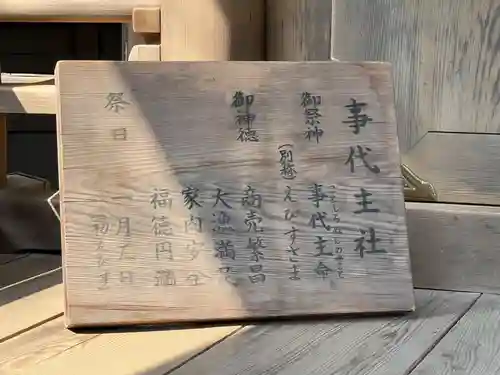 事代主社
御祭神
事代主命
(別称)
えびすさま
御神徳
商売繁昌
大漁満足
家内安全
福徳円満
祭日
一月九日